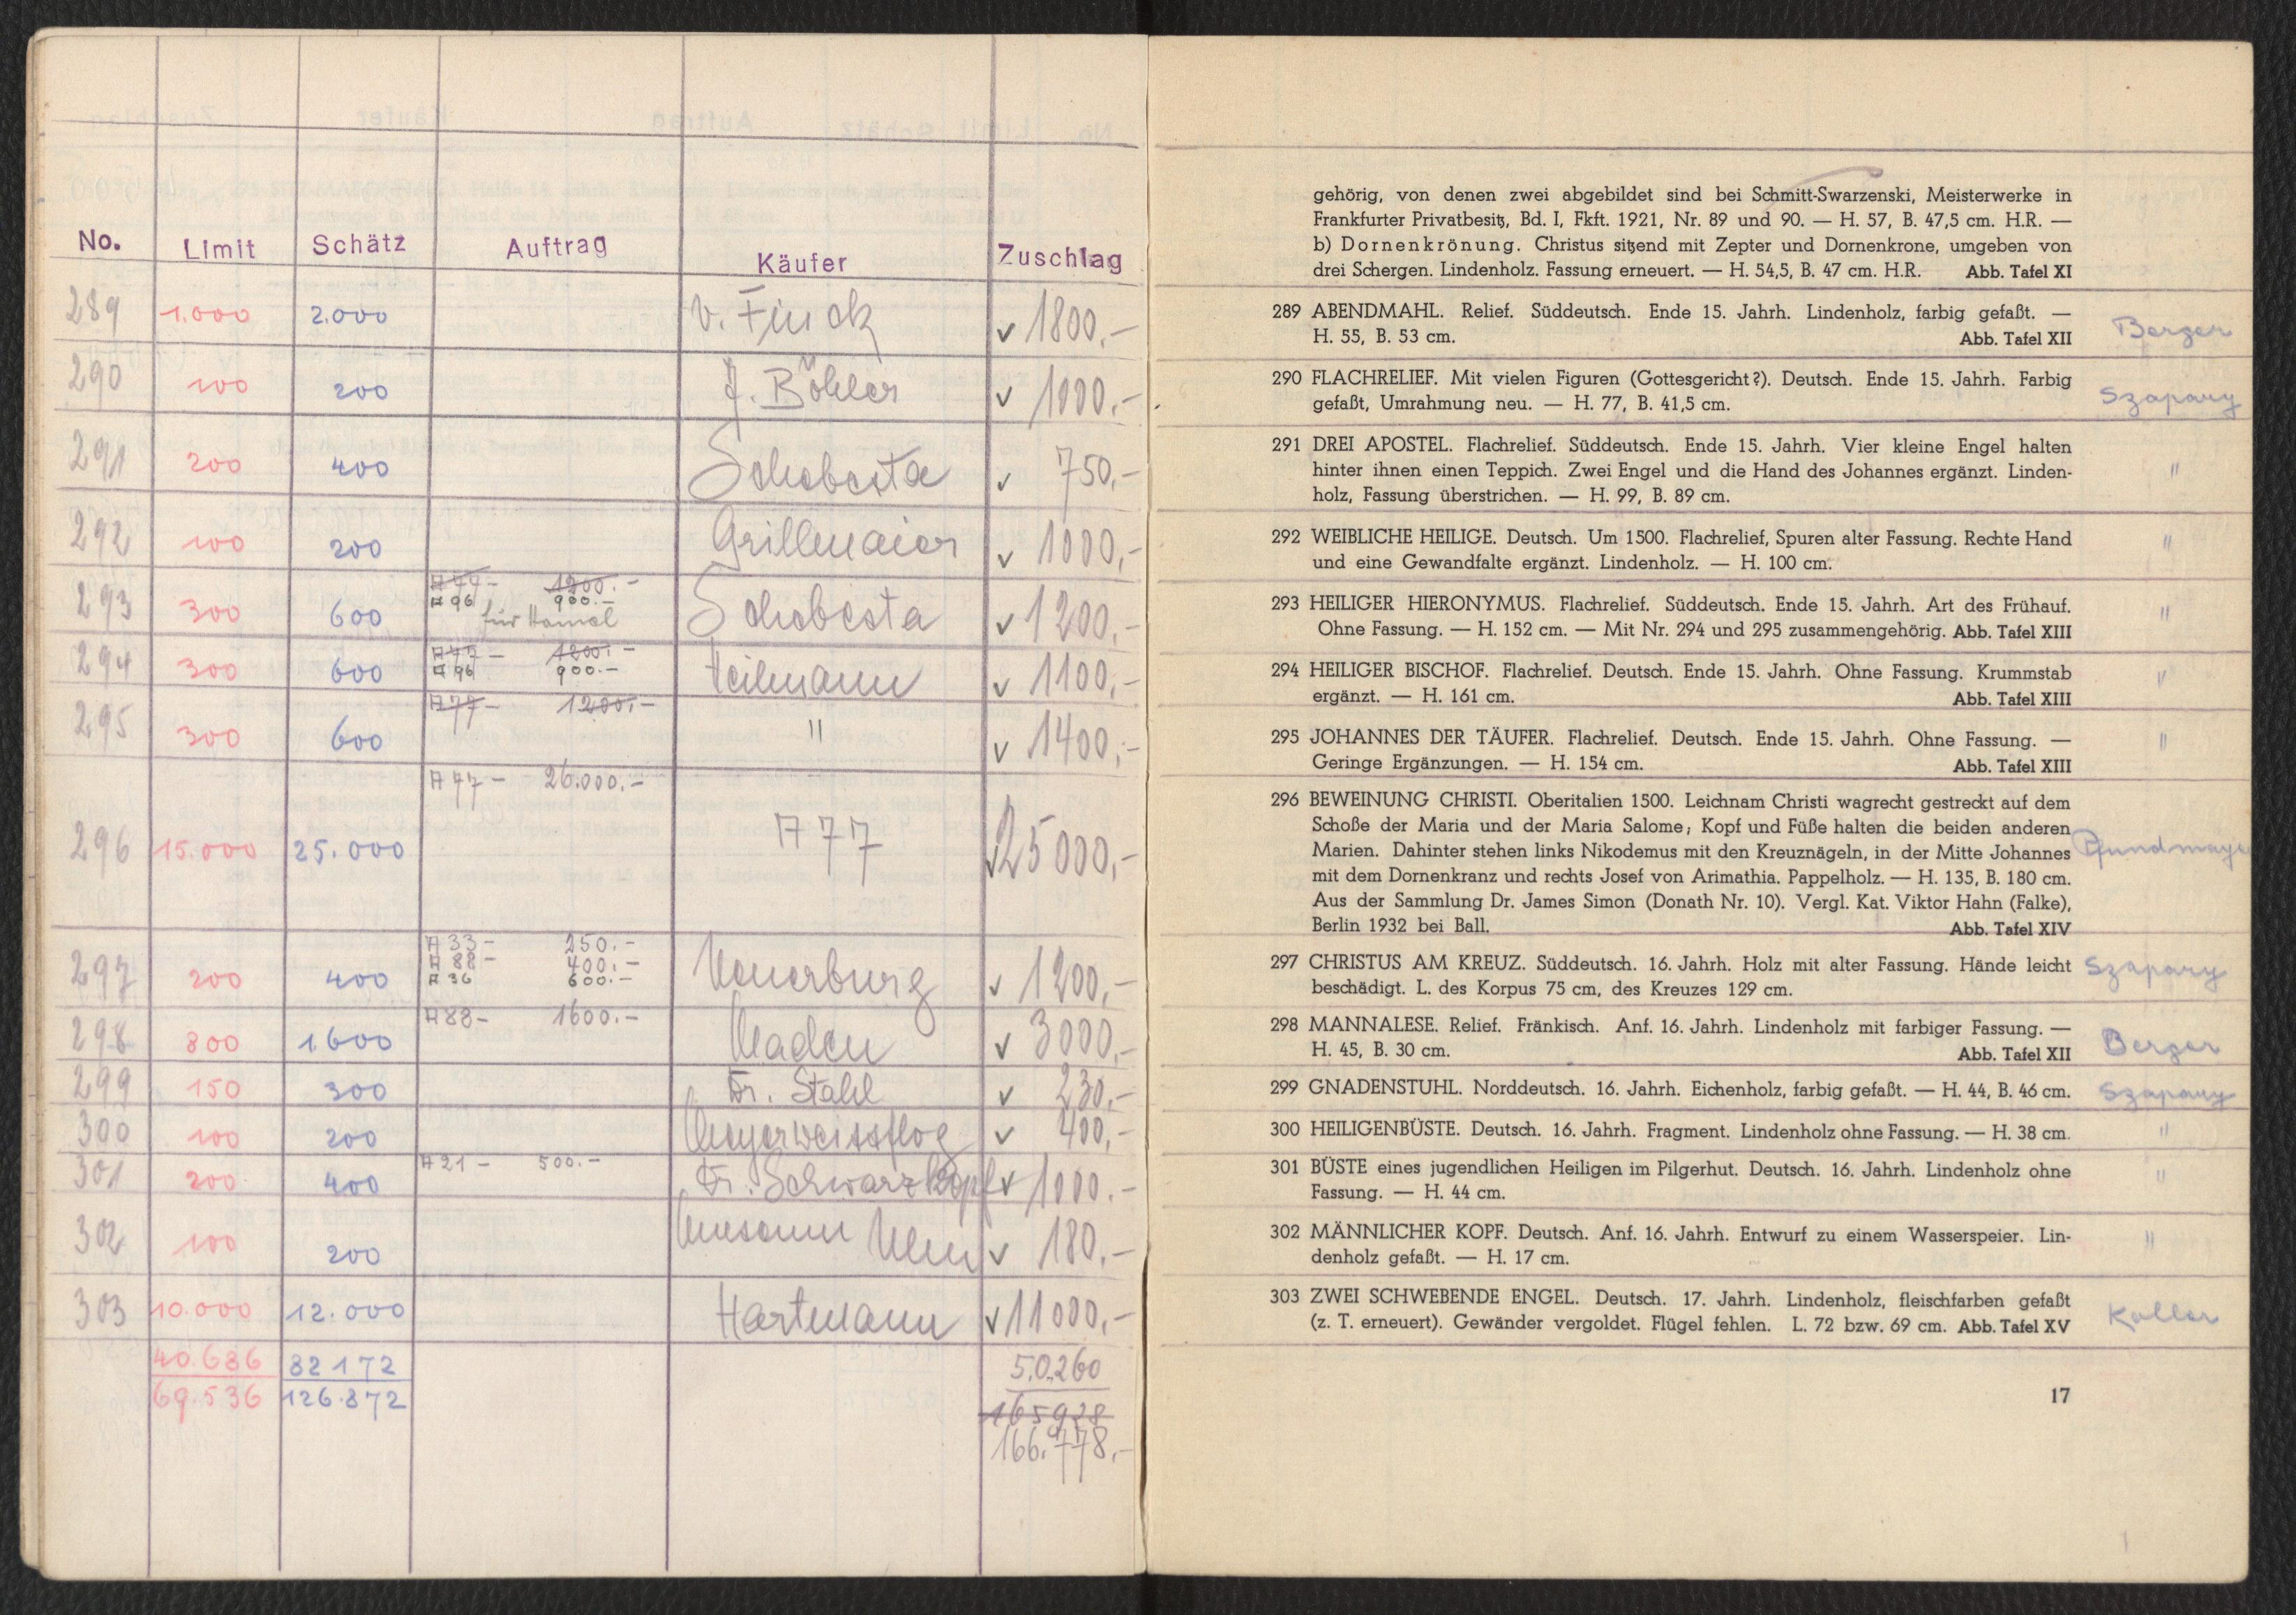 No. Limit Schätz Auftrag Käufer Zuschlag
289 1.000 2.000 v. Finck v 1800.-
290 100 200 J. Böhler v 1000.-
291 200 400 Schobesta v 750.-
292 100 200 Grillmaier v 1000.-
A 77 - 1200.-
293 300 600 A 96 900.- Schobesta v 1200.-
für Hamel
A 77 - 1200.-
294 300 600 A 96 900.- Heilmann v 1100.-
A 77 - 1200.-
295 300 600 " v 1400.-
A 77 - 26.000.-
296 15.000 25.000 A 77 v 25000.-
A 33 - 250.-
A 88 - 400.-
297 200 400 A 36 600.- Neuerburg v 1200.-
A 88 - 1600.-
298 800 1600 v 3000.-
299 150 300 Dr. Stahl v 230.-
300 100 200 Meyerweissflog v 400.-
A 21 - 500.-
301 200 400 Dr. Schwarzkopf v 1000.-
302 100 200 Museum Ulm v 180.-
303 10.000 12.000 Hartmann v 11000.-
40.686 82172 50.260
69.536 126.872 165928
166.778.-
gehörig, von denen zwei abgebildet sind bei Schmitt-Swarzenski, Meisterwerke in
Frankfurter Privatbesitz, Bd. I, Fkft. 1921, Nr. 89 und 90. — H. 57, B. 47,5 cm. H.R. —
b) Dornenkrönung. Christus sitzend mit Zepter und Dornenkrone, umgeben von
drei Schergen. Lindenholz. Fassung erneuert. — H. 54,5, B. 47 cm. H.R. Abb. Tafel XI
289 ABENDMAHL. Relief. Süddeutsch. Ende 15. Jahrh. Lindenholz, farbig gefaßt. —
H. 55, B. 53 cm. Abb. Tafel XII Berger
290 FLACHRELIEF. Mit vielen Figuren (Gottesgericht?). Deutsch. Ende 15. Jahrh. Farbig
gefaßt, Umrahmung neu. — H. 77, B. 41,5 cm. Szapary
291 DREI APOSTEL. Flachrelief. Süddeutsch. Ende 15. Jahrh. Vier kleine Engel halten
hinter ihnen einen Teppich. Zwei Engel und die Hand des Johannes ergänzt. Linden- "
holz, Fassung überstrichen. — H. 99, B. 89 cm.
292 WEIBLICHE HEILIGE. Deutsch. Um 1500. Flachrelief, Spuren alter Fassung. Rechte Hand "
und eine Gewandfalte ergänzt. Lindenholz. — H. 100 cm.
293 HEILIGER HIERONYMUS. Flachrelief. Süddeutsch. Ende 15. Jahrh. Art des Frühauf. "
Ohne Fassung. — H. 152 cm. — Mit Nr. 294 und 295 zusammengehörig. Abb. Tafel XIII
294 HEILIGER BISCHOF. Flachrelief. Deutsch. Ende 15. Jahrh. Ohne Fassung. Krummstab "
ergänzt. — H. 161 cm. Abb. Tafel XIII
295 JOHANNES DER TÄUFER. Flachrelief. Deutsch. Ende 15. Jahrh. Ohne Fassung. — "
Geringe Ergänzungen. — H. 154 cm. Abb. Tafel XIII
296 BEWEINUNG CHRISTI. Oberitalien 1500. Leichnam Christi wagrecht gestreckt auf dem
Schoße der Maria und der Maria Salome; Kopf und Füße halten die beiden anderen
Marien. Dahinter stehen links Nikodemus mit den Kreuznägeln, in der Mitte Johannes
mit dem Dornenkranz und rechts Josef von Arimathia. Pappelholz. — H. 135, B. 180 cm.
Aus der Sammlung Dr. James Simon (Donath Nr. 10). Vergl. Kat. Viktor Hahn (Falke),
Berlin 1932 bei Ball. Abb. Tafel XIV
297 CHRISTUS AM KREUZ. Süddeutsch. 16. Jahrh. Holz mit alter Fassung. Hände leicht Szapary
beschädigt. L. des Korpus 75 cm, des Kreuzes 129 cm.
298 MANNALESE. Relief. Fränkisch. Anf. 16. Jahrh. Lindenholz mit farbiger Fassung. —
H. 45, B. 30 cm. Abb. Tafel XII Berger
299 GNADENSTUHL. Norddeutsch. 16. Jahrh. Eichenholz, farbig gefaßt. — H. 44, B. 46 cm. Szapary
300 HEILIGENBÜSTE. Deutsch. 16. Jahrh. Fragment. Lindenholz ohne Fassung. — H. 38 cm. "
301 BÜSTE eines jugendlichen Heiligen im Pilgerhut. Deutsch. 16. Jahrh. Lindenholz ohne "
Fassung. — H. 44 cm.
302 MÄNNLICHER KOPF. Deutsch. Anf. 16. Jahrh. Entwurf zu einem Wasserspeier. Lin- "
denholz gefaßt. — H. 17 cm.
303 ZWEI SCHWEBENDE ENGEL. Deutsch. 17. Jahrh. Lindenholz, fleischfarben gefaßt
(z. T. erneuert). Gewänder vergoldet. Flügel fehlen. L. 72 bzw. 69 cm. Abb. Tafel XV Koller
17